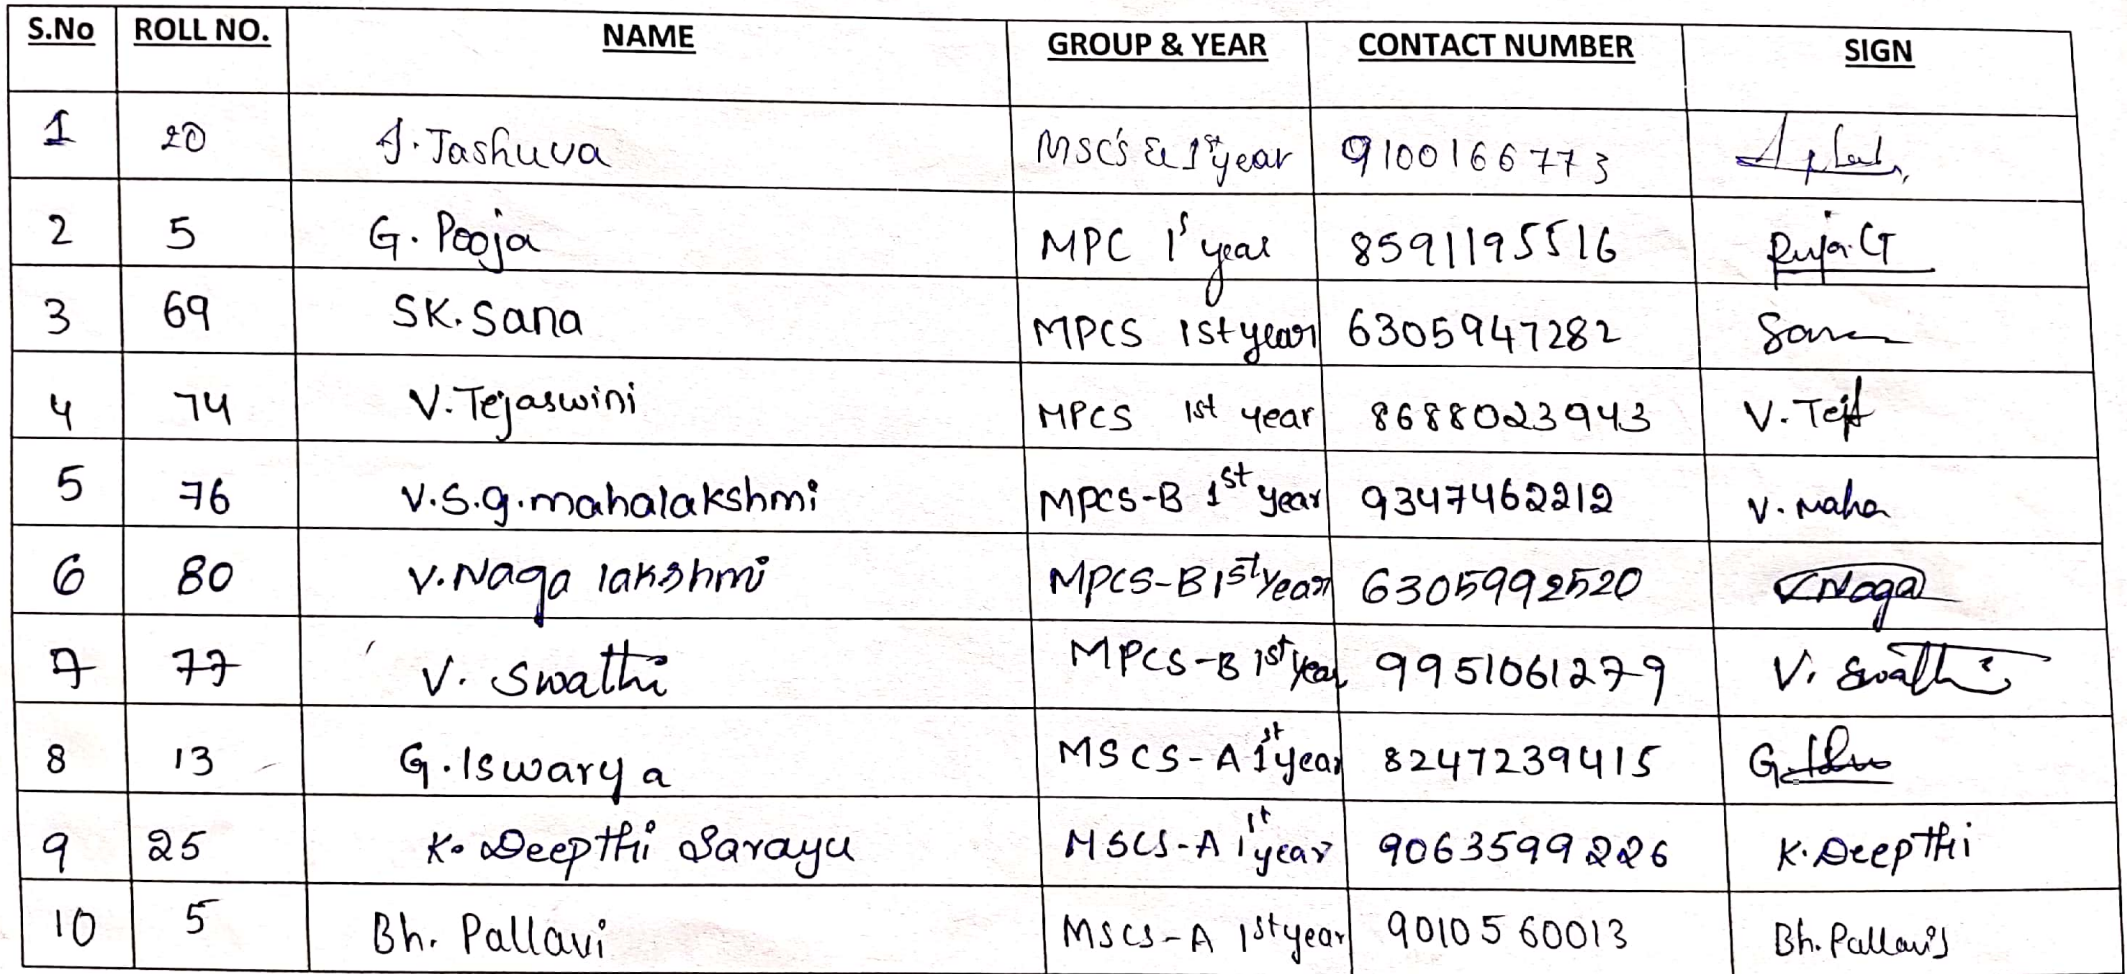 S.No ROLL NO. NAME GROUP & YEAR CONTACT NUMBER SIGN
1 20 J. Jashuva MSC's & 1st year 9100166773
2 5 G. Pooja MPC 1s year 8591195516 Puja.G
3 69 SK. Sana MPCS 1st year 6305947282 Sana
4 74 V. Tejaswini MPCS 1st year 8688023943 V. Tej
5 76 V.S.g.mahalakshmi MPCS-B 1st year 9347462212 V. Maha
6 80 V. Naga lakshmi MPCS-B 1st year 6305992520 V Naga
7 77 V. Swathi MPCS-B 1st year 9951061279 V. Swathi
8 13 G. Iswarya MSCS-A 1st year 8247239415 G.
9 25 K. Deepthi Sarayu MSCS-A 1st year 9063599226 K. Deepthi
10 5 Bh. Pallavi MSCS-A 1st year 9010560013 Bh. Pallavi